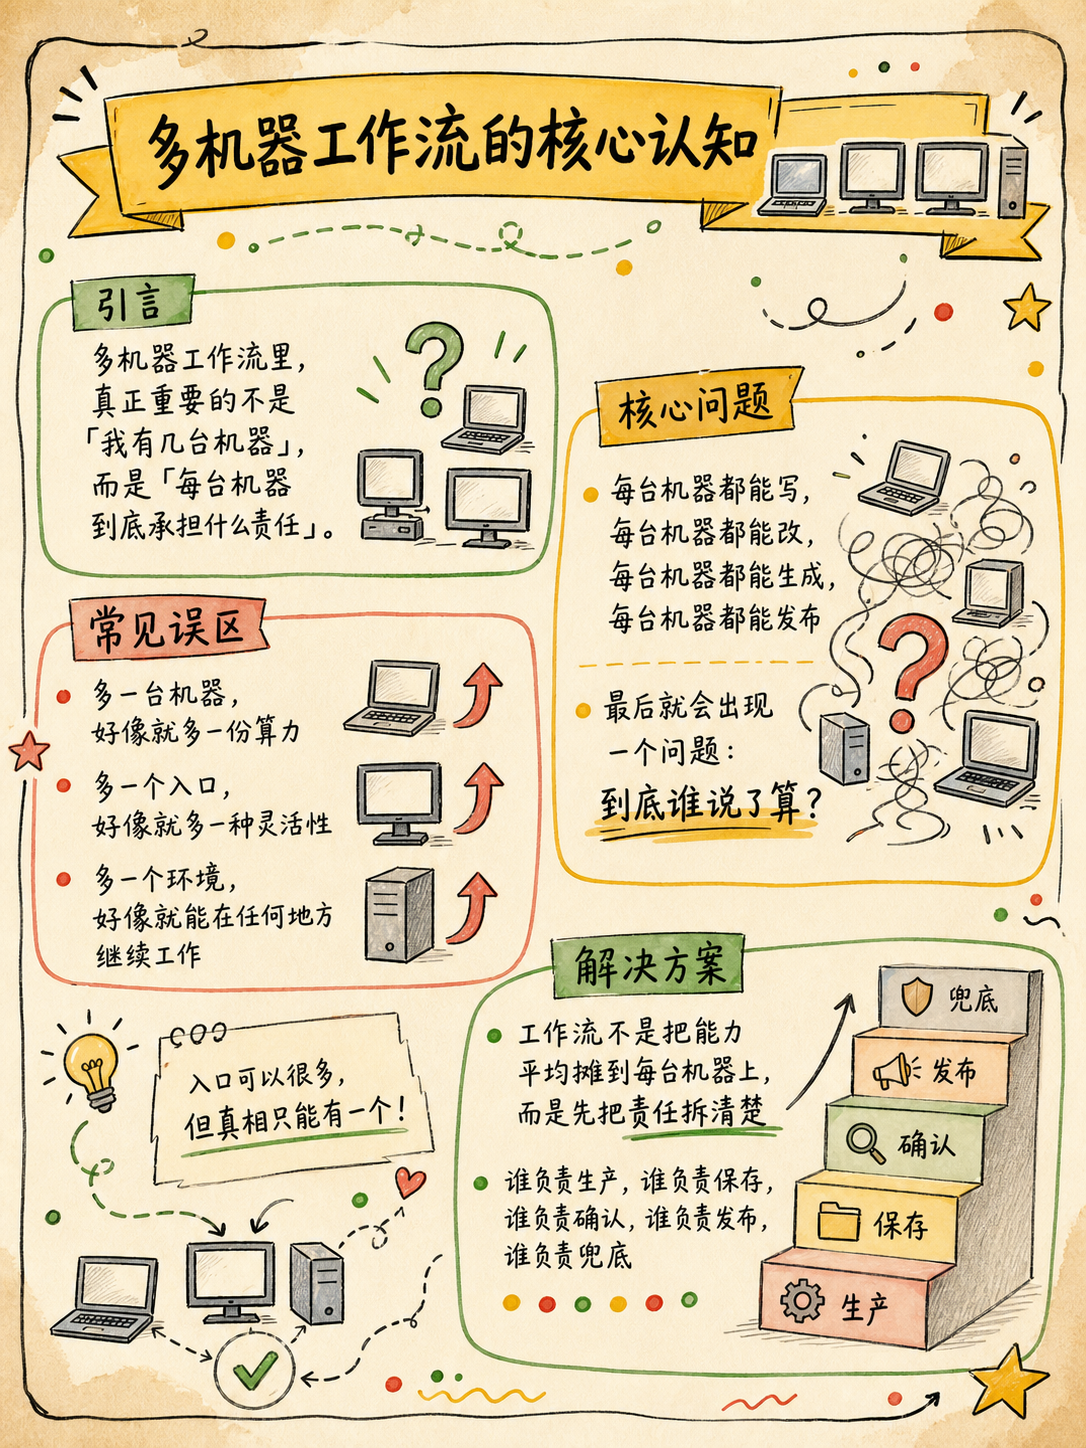 多机器工作流的核心认知
引言
多机器工作流里,
真正重要的不是
「我有几台机器」,
而是「每台机器
到底承担什么责任」。
核心问题
每台机器都能写,
每台机器都能改,
每台机器都能生成,
每台机器都能发布
最后就会出现
一个问题:
到底谁说了算?
常见误区
多一台机器,
好像就多一份算力
多一个入口,
好像就多一种灵活性
多一个环境,
好像就能在任何地方
继续工作
入口可以很多,
但真相只能有一个!
解决方案
工作流不是把能力
平均摊到每台机器上,
而是先把责任拆清楚
谁负责生产, 谁负责保存,
谁负责确认, 谁负责发布,
谁负责兜底
兜底
发布
确认
保存
生产